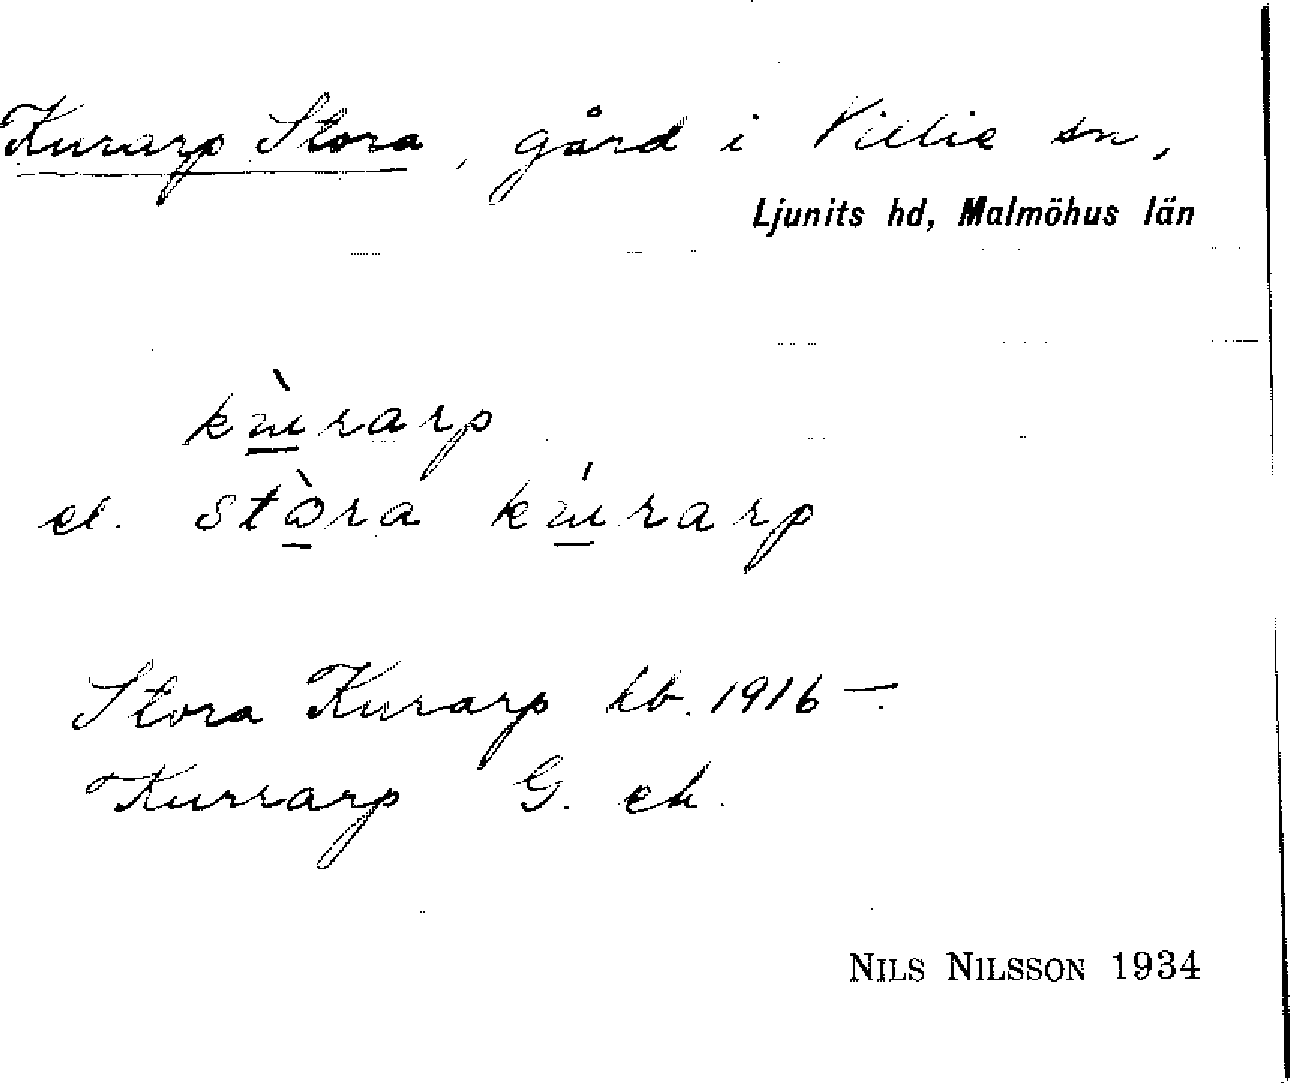 Kurarp Stora, gård i Villie sn,
Ljunits hd, Malmöhus län
kùrarp
el. stòra kúrarp
Stora Kurarp kb. 1916 –.
Kurrarp G. ek.
NILS NILSSON 1934